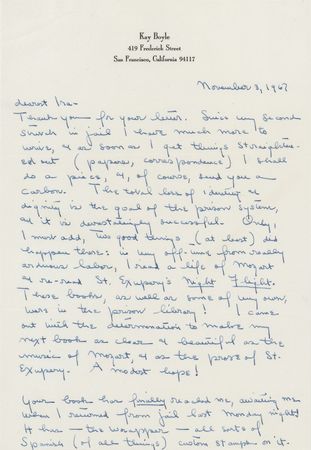 Kay Boyle
419 Frederick Street
San Francisco, California 94117
November 3, 1967
dearest Ira-
Thank you for your letter. Since my second
stretch in jail I have much more to
write, & as soon as I get things straighten-
ed out (papers, correspondence) I shall
do a piece, &, of course, send you a
carbon. The total loss of identity &
dignity is the goal of the prison system,
and it is devastatingly successful. Only,
I must add, two good things (at least) did
happen there: in my off-time from really
arduous labor, I read a life of Mozart
& re-read St. Exupery's Night Flight.
These books, as well as some of my own,
were in the prison library! I came
out with the determination to make my
next book as clear & beautiful as the
music of Mozart, & as the prose of St.
Exupery. A modest hope!
Your book has finally reached me, awaiting me
when I returned from jail last Monday night!
It has — the wrapper — all sorts of
Spanish (of all things) custom stamps on it.